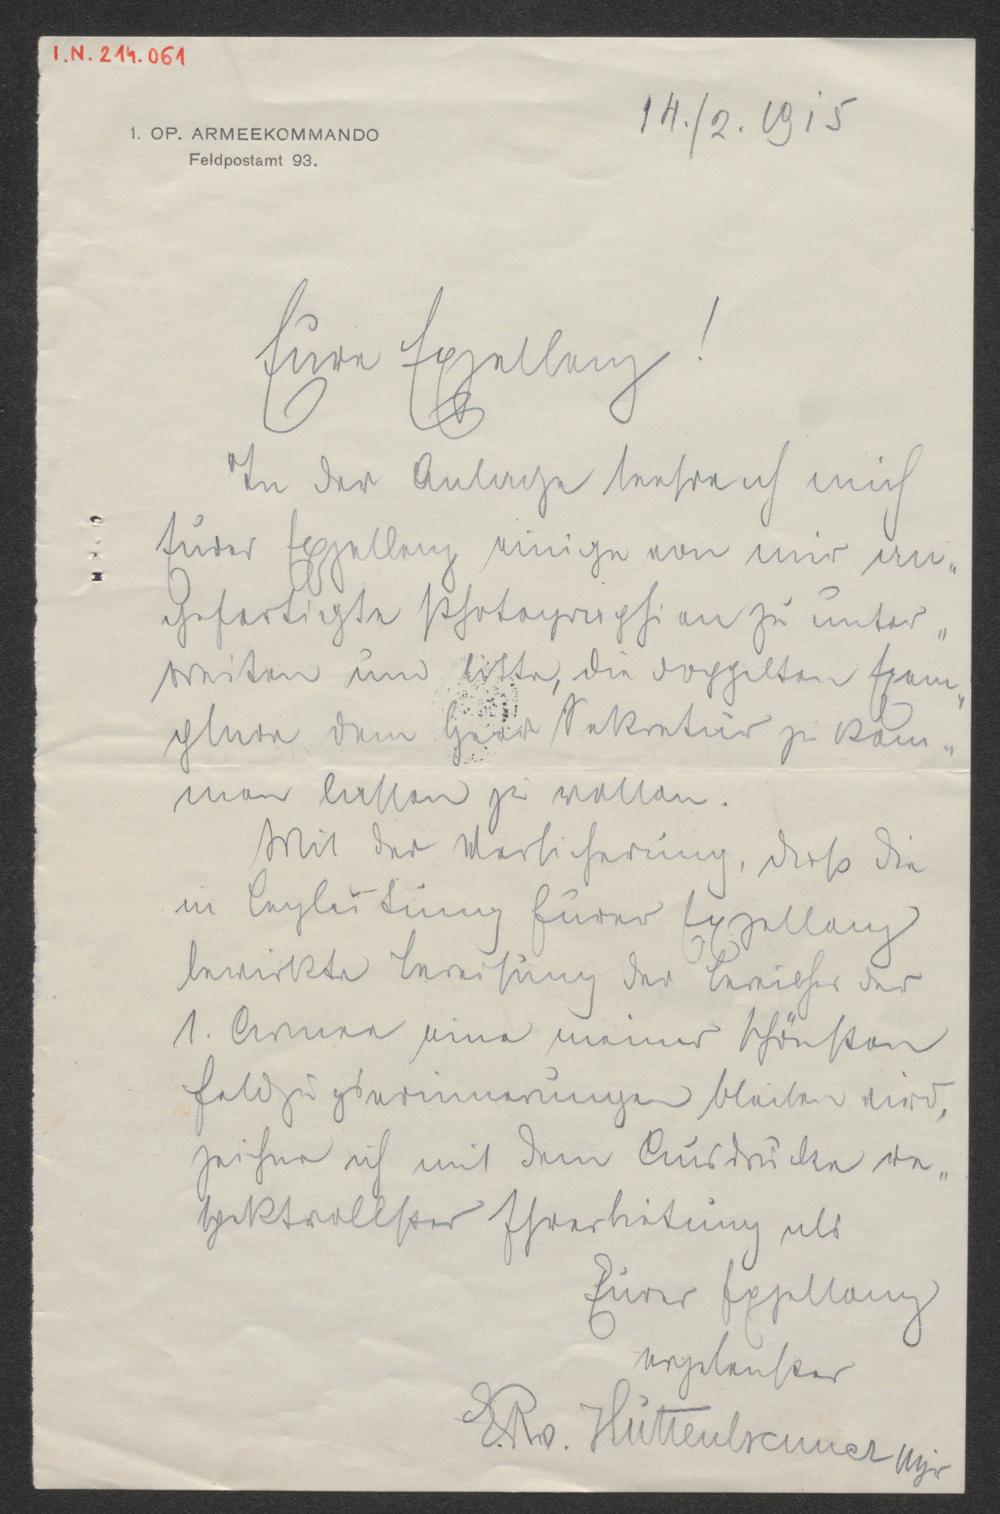 I.N. 214.061
1. OP. ARMEEKOMMANDO
Feldpostamt 93.
14./2. 1915
Eure Exzellenz!
In der Anlage beehre ich mich
Eurer Exzellenz einige von mir an„
gefertigte Photographien zu unter„
breiten und bitte, die doppelten Exem„
plare dem Herrn Sekretär zu kom„
men lassen zu wollen.
Mit der Versicherung, dass die
in Begleitung Eurer Exzellenz
bewirkte Bereisung der Bereiche der
1. Armee eine meiner schönsten
Feldzugserinnerungen bleiben wird,
zeichne ich mit dem Ausdrucke re„
spektvollster Ehrerbietung als
Eurer Exzellenz
ergebenster
Rv. Hüttenbrenner Mjr